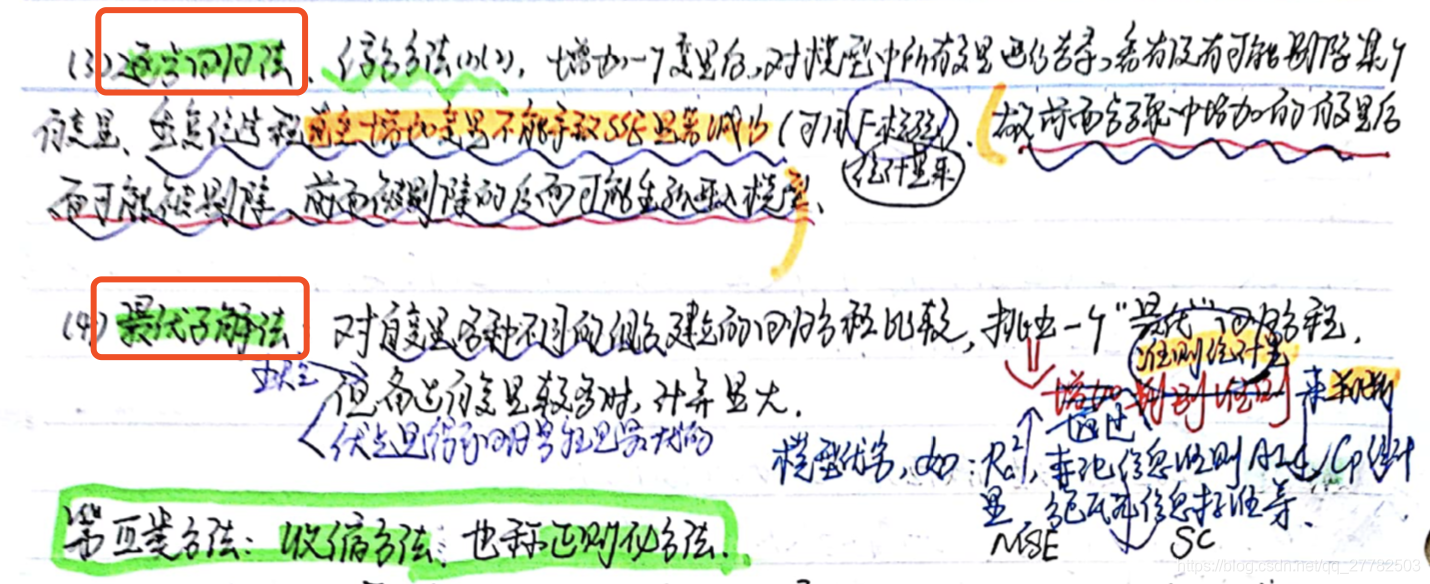 (3) 逐步回归法、结合方法(1)(2)，增加一个变量后，对模型中所有变量进行考察，看有没有可能剔除某个
自变量、重复该过程直至增加变量不能导致SSE显著减少（可用F检验）. 故前面步骤中增加的自变量后
统计量来
面可能被剔除、前面被剔除的后面可能重新进入模型、
(4) 最优子集法：对自变量各种不同的组合建立的回归方程比较，挑出一个“最优”回归方程.
准则统计量
缺点 但备选自变量较多时，计算量大. 增加 判别准则 来判断
优点是得到的回归方程是最优的 通过
模型优劣，如：Ra²，赤池信息准则AIC，Cp统计
量，贝叶斯信息标准等.
MSE SC
第五类方法：收缩方法：也称正则化方法.
https://blog.csdn.net/qq_27782503